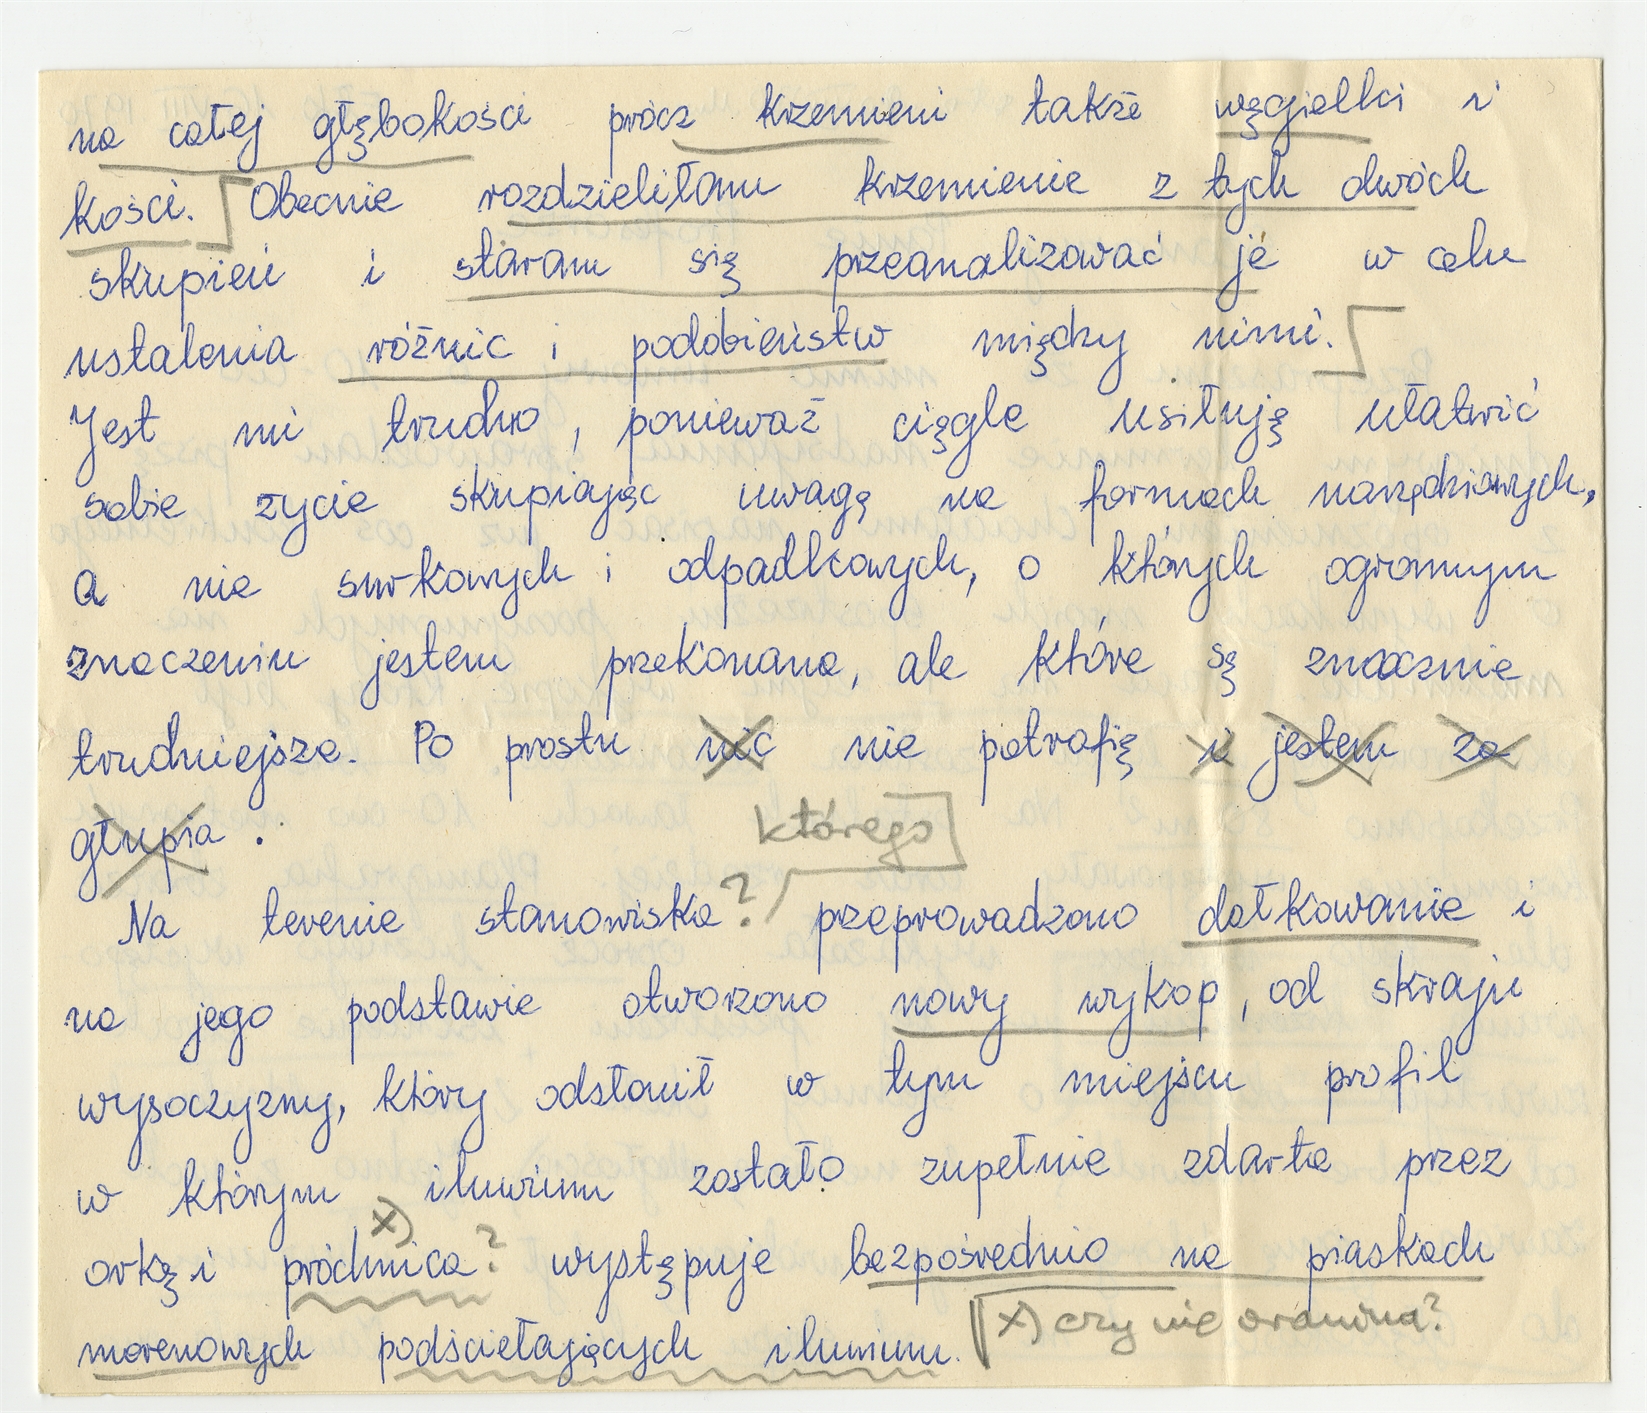 na całej głębokości prócz krzemieni także węgielki i
kości. Obecnie rozdzieliłam krzemienie z tych dwóch
skupień i staram się przeanalizować je w celu
ustalenia różnic i podobieństw między nimi.
Jest mi trudno, ponieważ ciągle usiłuję ułatwić
sobie życie skupiając uwagę na formach narzędziowych,
a nie surowych i odpadkowych, o których ogromnym
znaczeniu jestem przekonana, ale które są znacznie
trudniejsze. Po prostu nic nie potrafię i jestem za
głupia.
którego
Na terenie stanowiska? przeprowadzono dołkowanie i
na jego podstawie otworzono nowy wykop, od skraju
wysoczyzny, który odsłonił w tym miejscu profil
w którym iluwium zostało zupełnie zdarte przez
x)
orkę i próchnica? występuje bezpośrednio na piaskach
morenowych podścielających iluwium.
x) czy nie orawina?